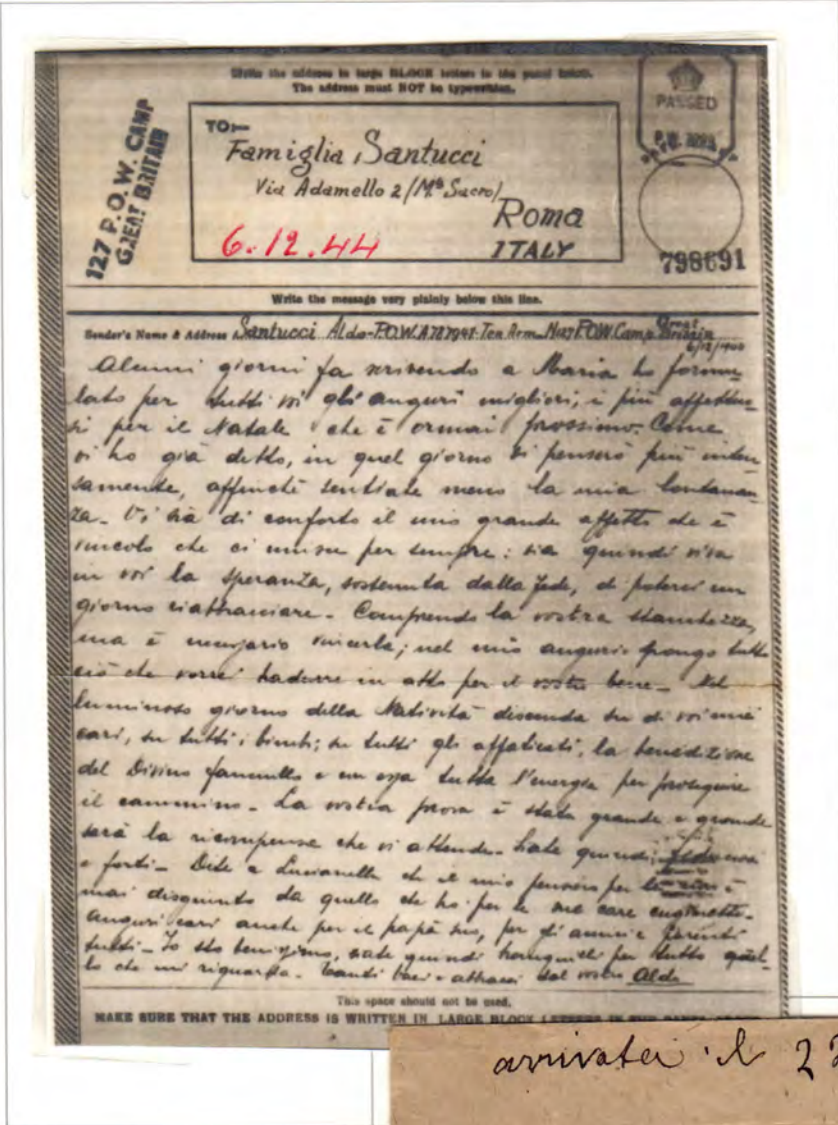 Write the address in large BLOCK letters in the panel below.
The address must NOT be typewritten.
127 P.O.W. CAMP
GREAT BRITAIN
PASSED
TO:—
Famiglia Santucci
Via Adamello 2 (Mte Sacro)
Roma
ITALY
6.12.44
798691
Write the message very plainly below this line.
Sender's Name & Address Santucci Aldo - P.O.W. Ten. Arm. P.O.W. Camp Great Britain
Alcuni giorni fa scrivendo a Maria ho formu-
lato per tutti voi gli auguri migliori, i più affettuo-
si per il Natale che è ormai prossimo. Come
vi ho già detto, in quel giorno vi penserò più inten-
samente, affinché sentiate meno la mia lontanan-
za. Vi sia di conforto il mio grande affetto che è
vincolo che ci unisce per sempre: sia quindi viva
in voi la speranza, sostenuta dalla fede, di poterci un
giorno riabbracciare - Comprendo la vostra stanchezza,
ma è necessario vincerla; nel mio augurio pongo tutto
ciò che vorrei tradurre in atto per il vostro bene - Nel
luminoso giorno della Natività discenda su di voi miei
cari, su tutti i bimbi, su tutti gli affaticati, la benedizione
del Divino fanciullo e con essa tutta l'energia per proseguire
il cammino - La vostra prova è stata grande e grande
sarà la ricompensa che vi attende - Siate quindi
e forti - Dite a Lucianella che il mio pensiero per è
mai disgiunto da quello che ho per le sue care cuginette -
Auguri cari anche per il papà suo, per gli amici e parenti
tutti - Io sto benissimo, siate quindi tranquilli per tutto quel-
lo che mi riguarda - Tanti baci e abbracci dal vostro Aldo
This space should not be used.
MAKE SURE THAT THE ADDRESS IS WRITTEN IN LARGE BLOCK LETTERS IN THE
arrivata il 2